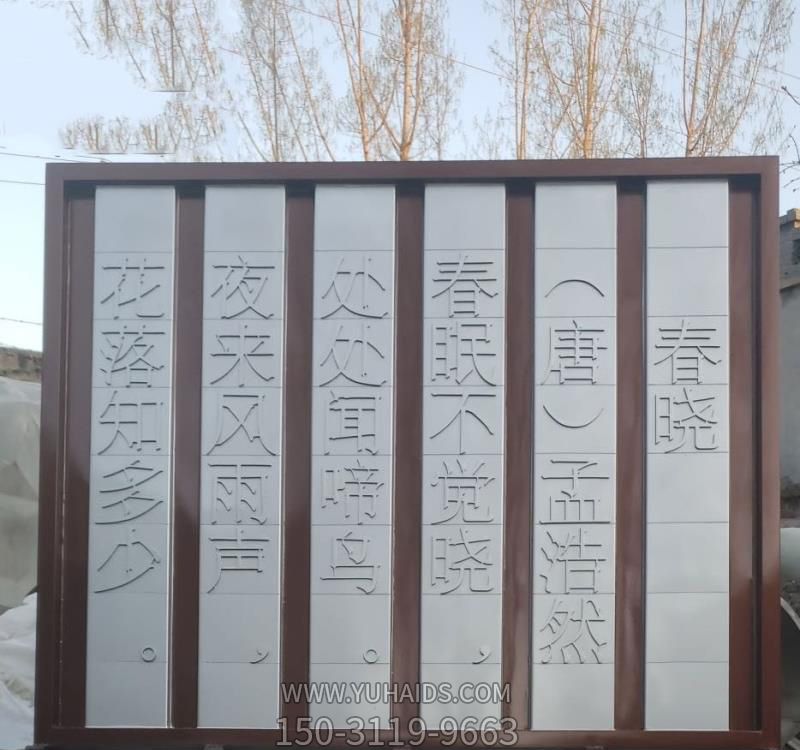 春晓
（唐）孟浩然
春眠不觉晓，
处处闻啼鸟。
夜来风雨声，
花落知多少。
WWW.YUHAIDS.COM
150-3119-9663